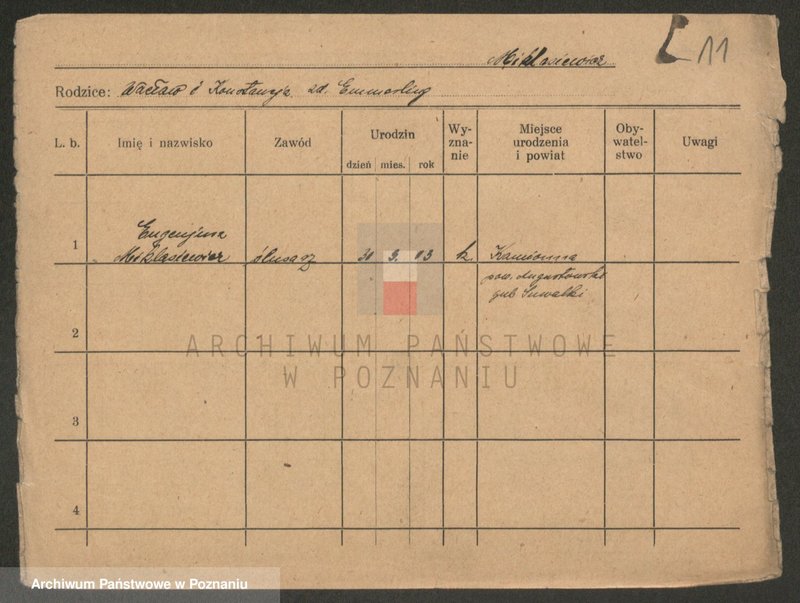 11
Miklasiewicz
Rodzice: Wacław i Konstancja zd. Emmerling
L. b. Imię i nazwisko Zawód Urodzin dzień mies. rok Wy-zna-nie Miejsce urodzenia i powiat Oby-watel-stwo Uwagi
1 Eugenjusz
Miklasiewicz ślusarz 31 3. 03 k. Kamionna
pow. Augustowski
gub Suwałki
2
ARCHIWUM PAŃSTWOWE
W POZNANIU
3
4
Archiwum Państwowe w Poznaniu